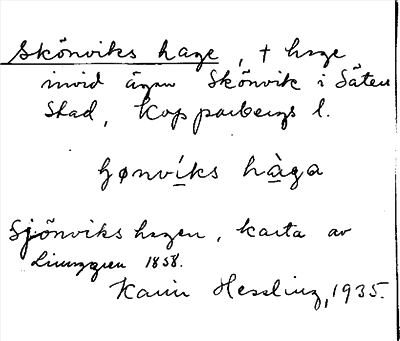 Skönviks hage, † hage
invid ägan Skönvik i Säters
stad, Kopparbergs l.
ʃønvíks hàga
Sjönviks hagen, karta av
Ljunggren 1858.
Karin Hessling, 1935.